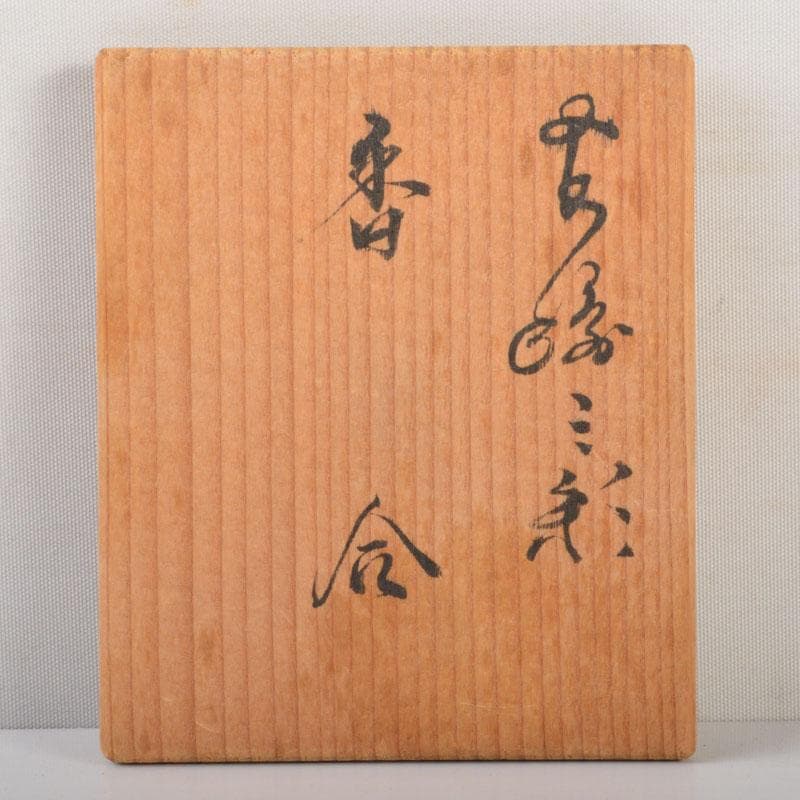 黄緑三彩
香合